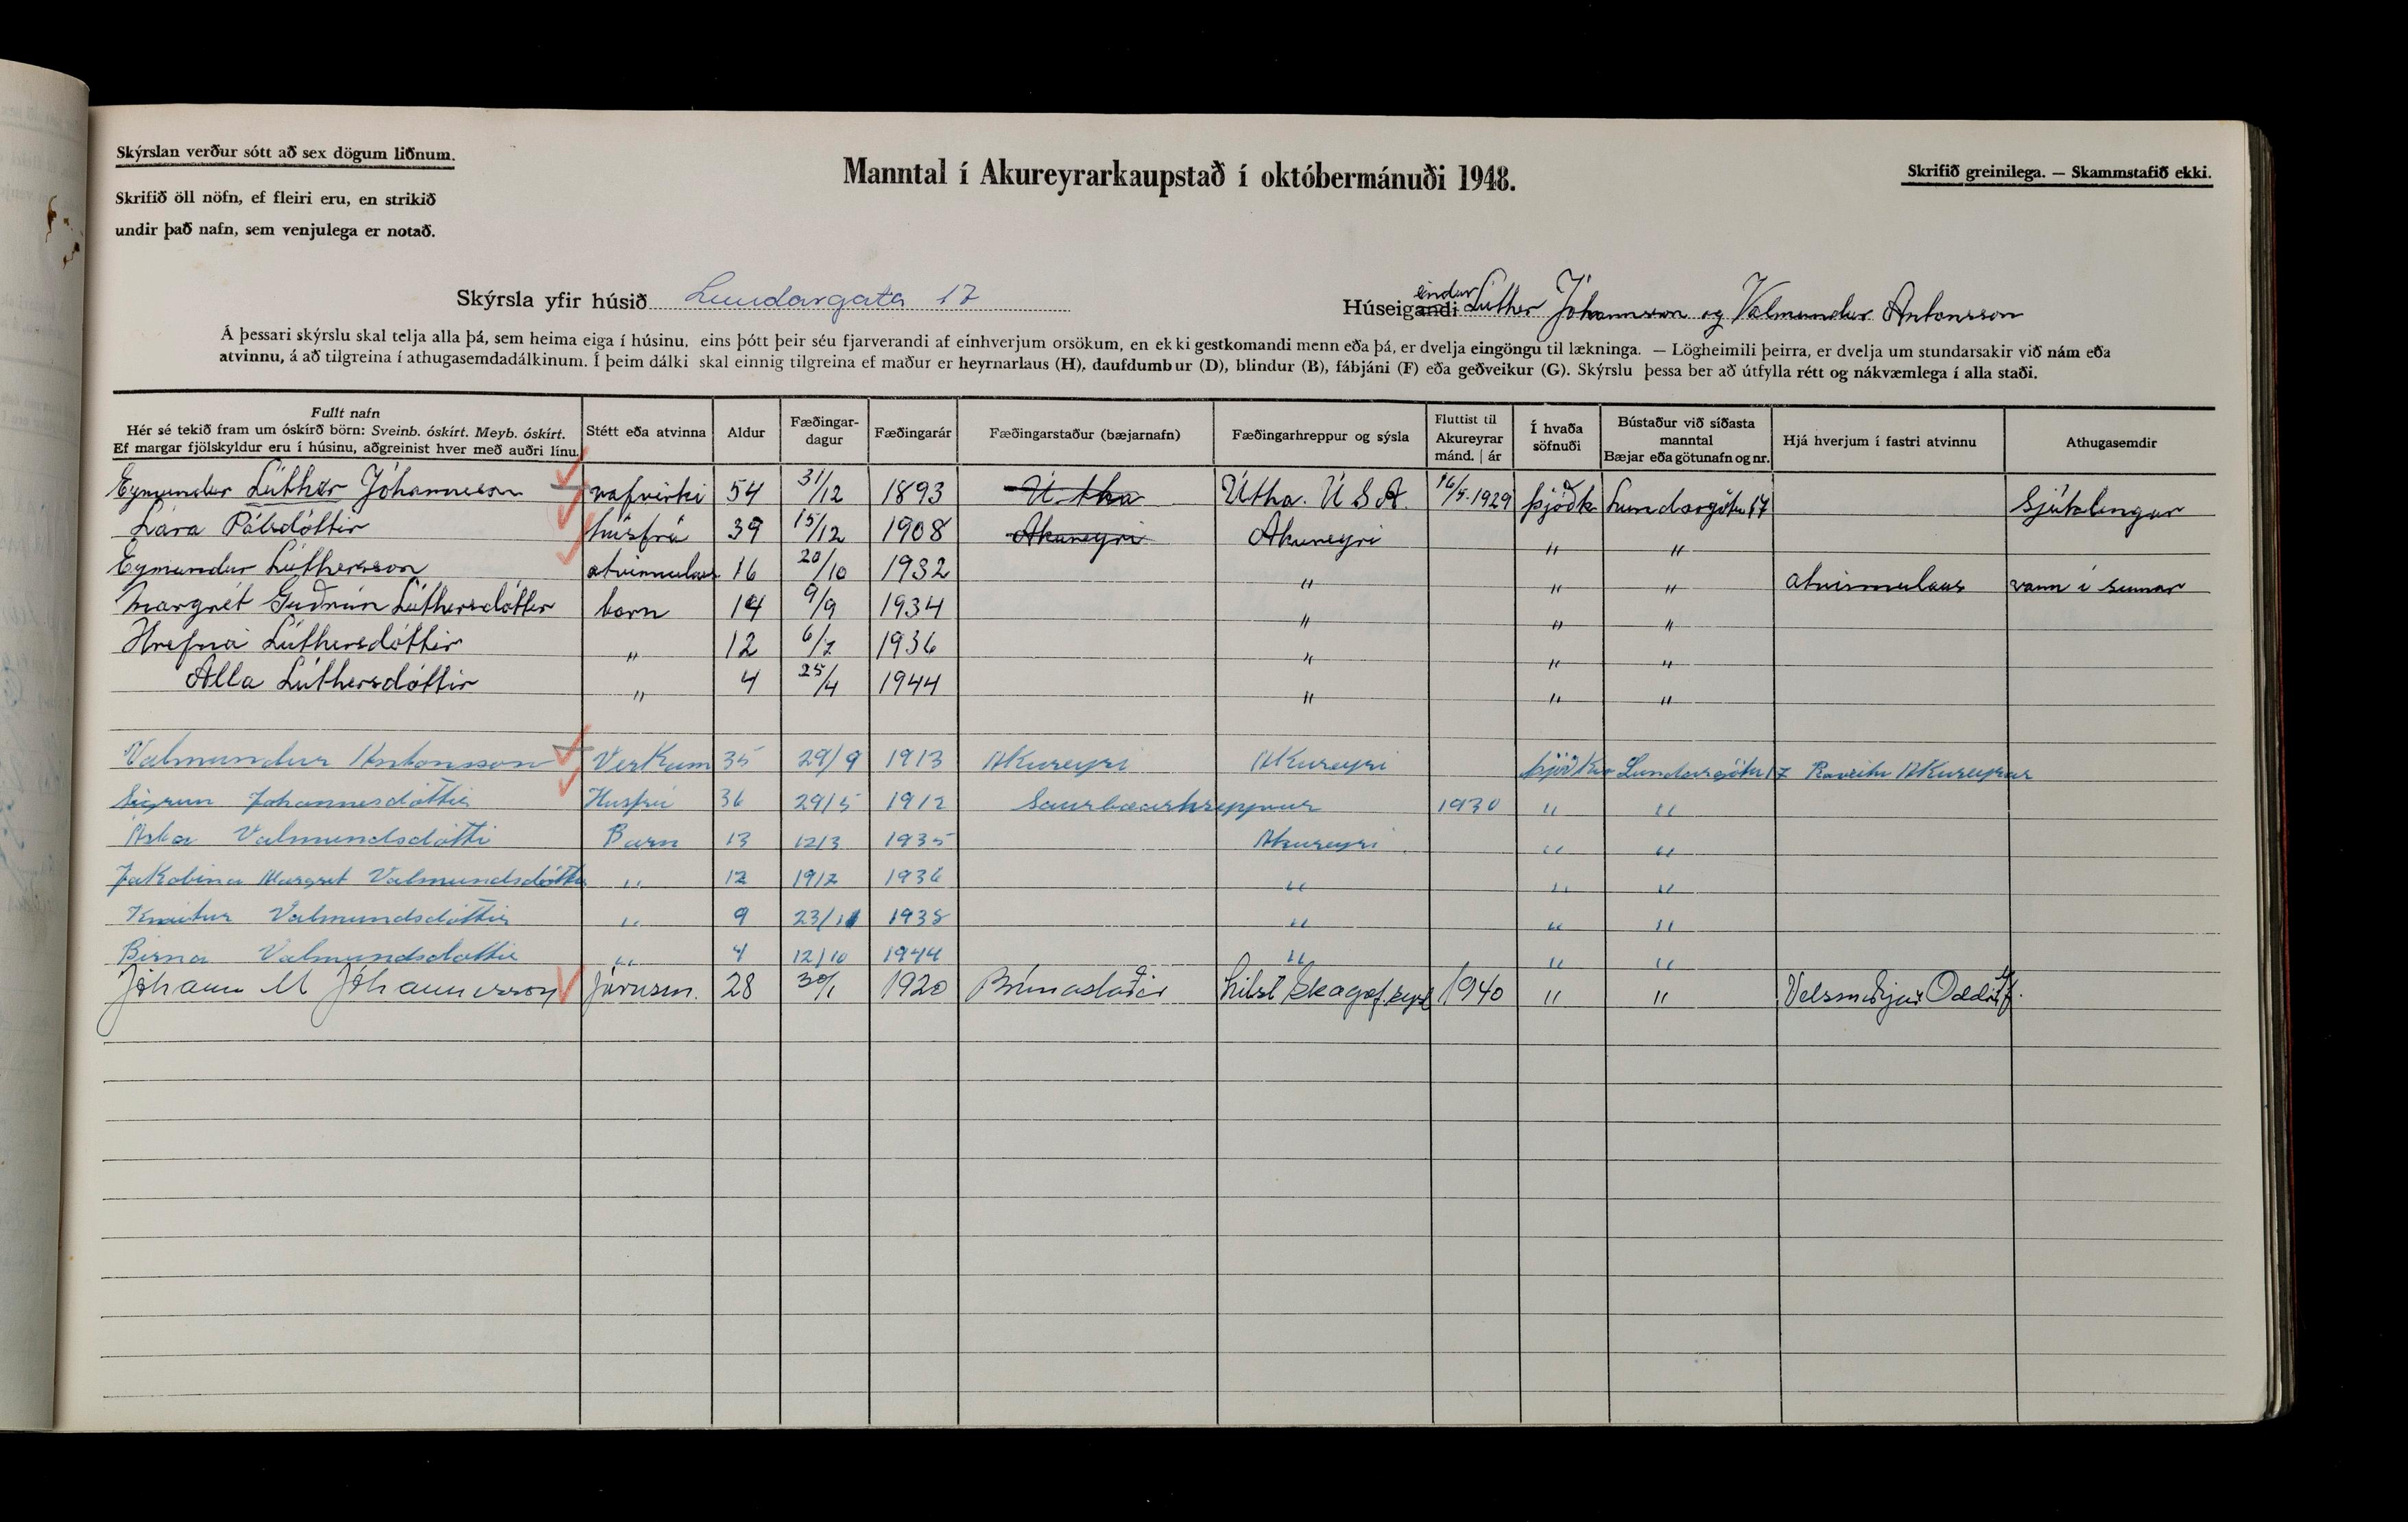 Skýrslan verður sótt að sex dögum liðnum.
Skrifið öll nöfn, ef fleiri eru, en strikið
undir það nafn, sem venjulega er notað.
Manntal í Akureyrarkaupstað í októbermánuði 1948.
Skrifið greinilega. — Skammstafið ekki.
Skýrsla yfir húsið Lundargata 17
Húseigandi endur Lúther Jóhannsson og Valmundur Antonsson
Á þessari skýrslu skal telja alla þá, sem heima eiga í húsinu, eins þótt þeir séu fjarverandi af einhverjum orsökum, en ekki gestkomandi menn eða þá, er dvelja eingöngu til lækninga. — Lögheimili þeirra, er dvelja um stundarsakir við nám eða
atvinnu, á að tilgreina í athugasemdadálkinum. Í þeim dálki skal einnig tilgreina ef maður er heyrnarlaus (H), daufdumbur (D), blindur (B), fábjáni (F) eða geðveikur (G). Skýrslu þessa ber að útfylla rétt og nákvæmlega í alla staði.
Fullt nafn
Hér sé tekið fram um óskírð börn: Sveinb. óskírt. Meyb. óskírt.
Ef margar fjölskyldur eru í húsinu, aðgreinist hver með auðri línu.
Stétt eða atvinna
Aldur
Fæðingar-
dagur
Fæðingarár
Fæðingarstaður (bæjarnafn)
Fæðingarhreppur og sýsla
Fluttist til
Akureyrar
mánd. | ár
Í hvaða
söfnuði
Bústaður við síðasta
manntal
Bæjar eða götunafn og nr.
Hjá hverjum í fastri atvinnu
Athugasemdir
Eymundur Lúther Jóhannsson rafvirki 54 31/12 1893 Útha Útha. Ú S A. 16/5. 1929 þjóðk Lundargötu 17
Lára Pálsdóttir húsfrú 39 15/12 1908 Akureyri Akureyri " "
Eymundur Lúthersson atvinnulaus 16 20/10 1932 " " " atvinnulaus vann í sumar
Margrét Guðrún Lúthersdóttir barn 14 9/9 1934 " " "
Hrefna Lúthersdóttir " 12 6/7 1936 " " "
Alla Lúthersdóttir " 4 25/4 1944 " " "
Valmundur Antonsson Verkam 35 29/9 1913 Akureyri Akureyri þjóðkir Lundargötu 17 Rafveitu Akureyrar
Sigrun Johannesdóttir Husfrú 36 29/5 1912 Saurbæarhreppur 1930 " "
Valmundsdótti Barn 13 12/3 1935 Akureyri " "
Jakobina Margret Valmundsdóttir " 12 19/7 1936 " " "
Valmundsdóttir " 9 23/11 1938 " " "
Birna Valmundsdottir " 4 12/10 1944 " " "
Jóhann M Jóhannesson Járnsm. 28 30/1 1920 Brúnastaðir 1940 " " Velsmiðjan Oddi h/f.